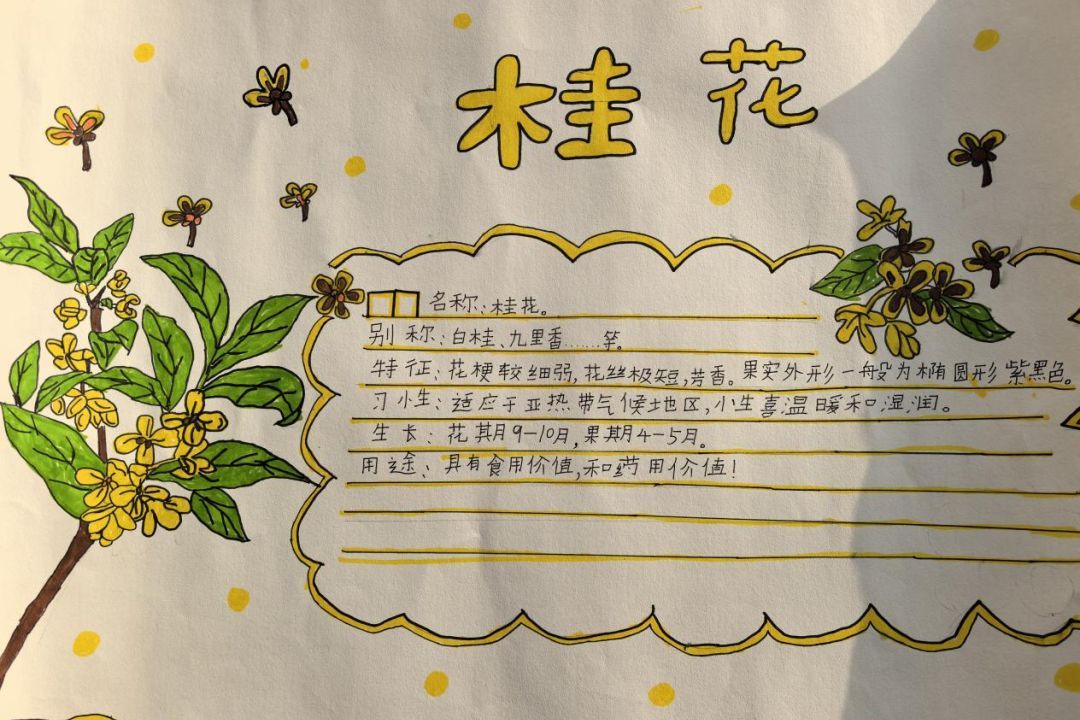 桂花
名称:桂花。
别称:白桂、九里香……等。
特征:花梗较细弱,花丝极短,芳香。果实外形一般为椭圆形紫黑色。
习小生:适应于亚热带气候地区,小生喜温暖和湿润。
生长:花其月9-10月,果其月4-5月。
用途:具有食用价值,和药用价值!